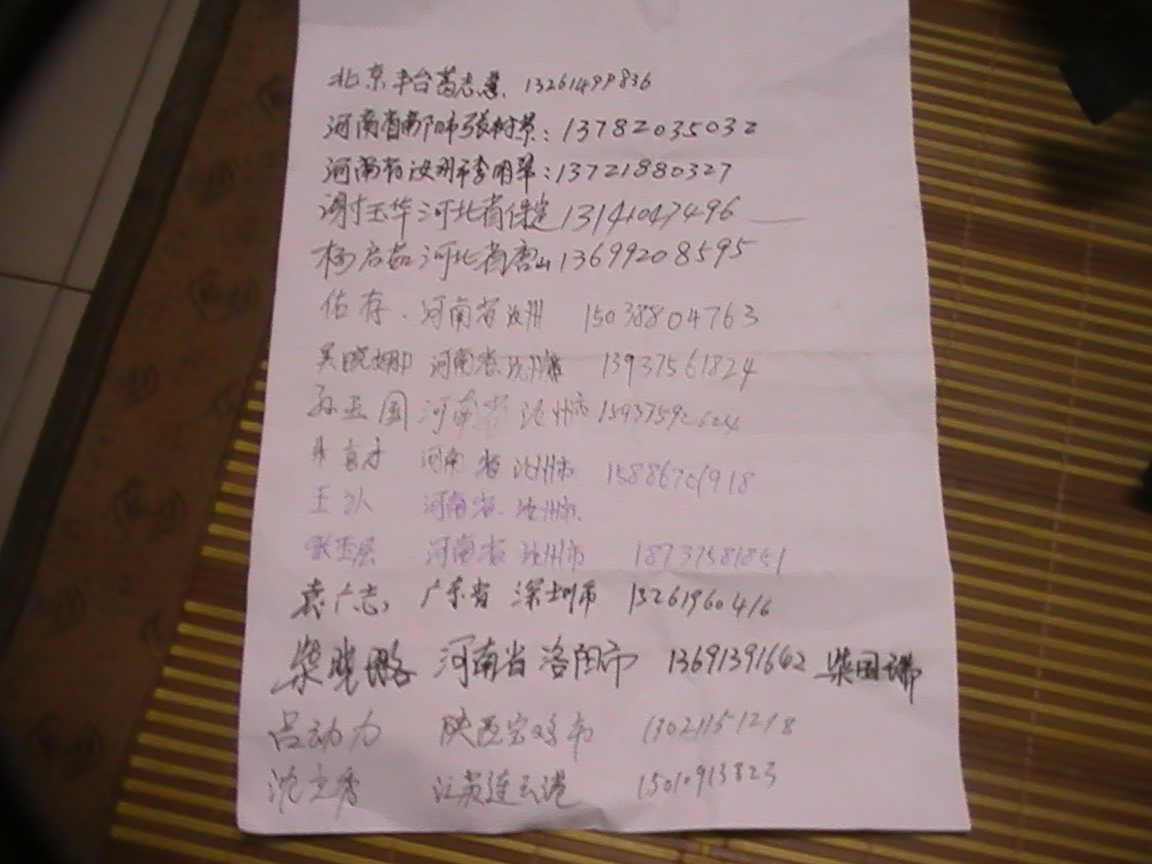 北京丰台苗志慧 13261499836
河南省南阳市张树景：13782035032
河南省汝州市李明翠：13721880327
谢玉华 河北省保定 13141047496
杨启茹 河北省唐山 13699208595
佑存、河南省汝州 15038804763
吴晓娜 河南省汝州市 13937561824
孙玉国 河南省汝州市
河南省汝州市
河南省 汝州市
河南省汝州市 18737581851
袁广志 广东省 深圳市 13261960416
柴晓 河南省洛阳市 13691391642 柴国
吕动力 陕西宝鸡市 13021151218
沈立秀 江苏连云港 15010913823